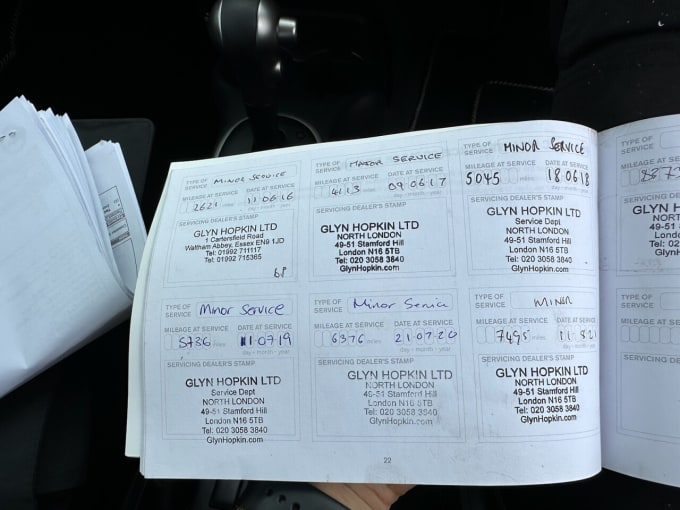 TYPE OF SERVICE Minor Service
MILEAGE AT SERVICE 2621 miles
DATE AT SERVICE 11·06·16
SERVICING DEALER'S STAMP
GLYN HOPKIN LTD
1 Cartersfield Road
Waltham Abbey, Essex EN9 1JD
Tel: 01992 711117
Fax: 01992 715365
TYPE OF SERVICE MAJOR SERVICE
MILEAGE AT SERVICE 4113 miles
DATE AT SERVICE 09·06·17
day - month - year
SERVICING DEALER'S STAMP
GLYN HOPKIN LTD
NORTH LONDON
49-51 Stamford Hill
London N16 5TB
Tel: 020 3058 3840
GlynHopkin.com
TYPE OF SERVICE MINOR SERVICE
MILEAGE AT SERVICE 5045 miles
DATE AT SERVICE 18·06·18
day - month - year
SERVICING DEALER'S STAMP
GLYN HOPKIN LTD
Service Dept
NORTH LONDON
49-51 Stamford Hill
London N16 5TB
Tel: 020 3058 3840
GlynHopkin.com
TYPE OF SERVICE Minor Service
MILEAGE AT SERVICE 5736 miles
DATE AT SERVICE 11·07·19
day - month - year
SERVICING DEALER'S STAMP
GLYN HOPKIN LTD
Service Dept
NORTH LONDON
49-51 Stamford Hill
London N16 5TB
Tel: 020 3058 3840
GlynHopkin.com
TYPE OF SERVICE Minor Service
MILEAGE AT SERVICE 6376 miles
DATE AT SERVICE 21·07·20
day - month - year
SERVICING DEALER'S STAMP
GLYN HOPKIN LTD
NORTH LONDON
49-51 Stamford Hill
London N16 5TB
Tel: 020 3058 3840
GlynHopkin.com
TYPE OF SERVICE MINOR
MILEAGE AT SERVICE 7495 miles
DATE AT SERVICE 11·8·21
day - month - year
SERVICING DEALER'S STAMP
GLYN HOPKIN LTD
NORTH LONDON
49-51 Stamford Hill
London N16 5TB
Tel: 020 3058 3840
GlynHopkin.com
22
TYPE OF SERVICE
MILEAGE AT SERVICE
SERVICING DEALER'S
GLYN HO
TYPE OF SERVICE
MILEAGE AT SERVICE
SERVICING DEALER'S